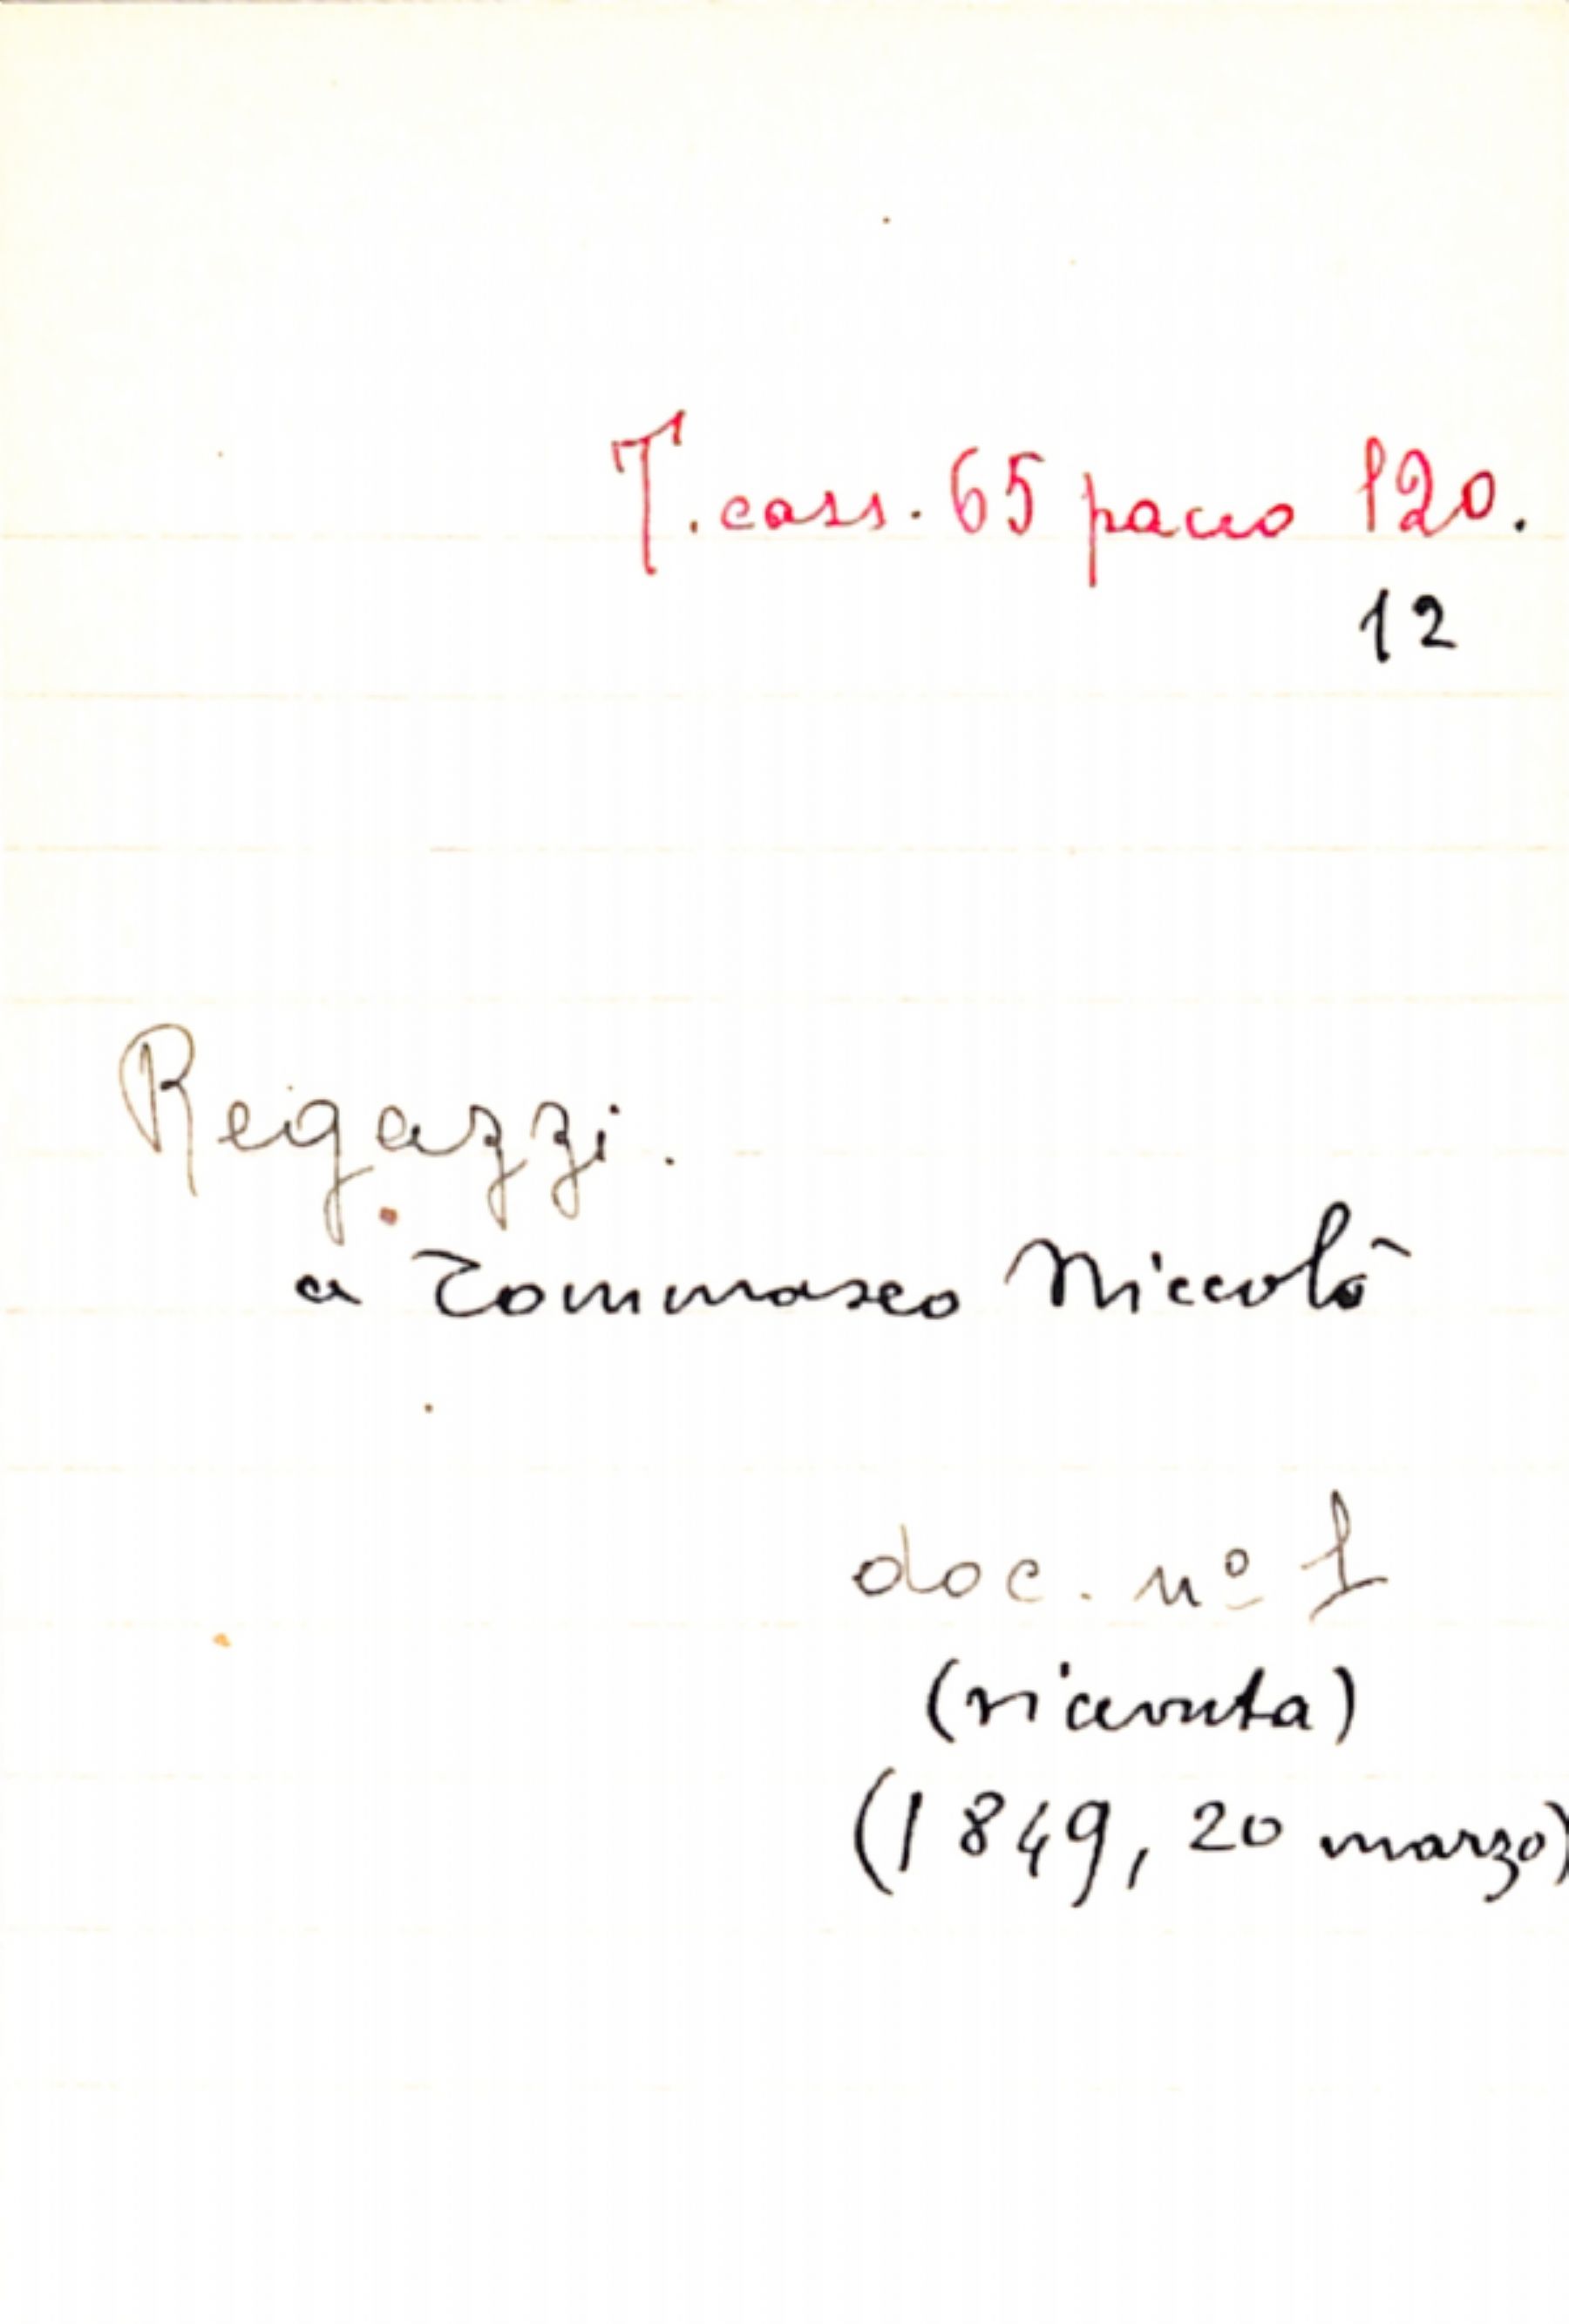 T. cass. 65 pacco 120.
12
Regazzi.
a Tommaseo Niccolò
doc. nº 1
(ricevuta)
(1849, 20 marzo)